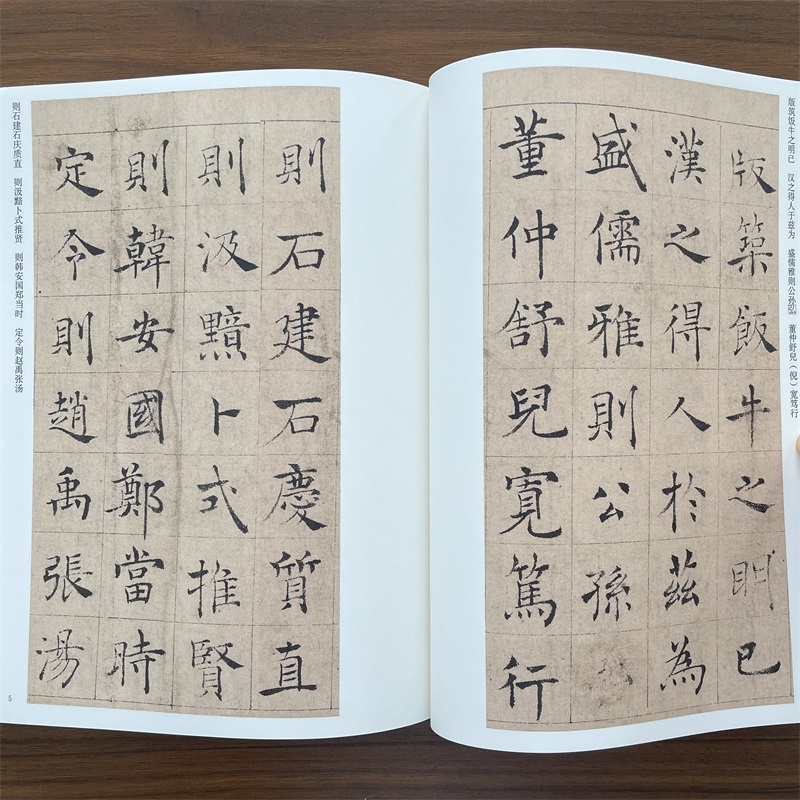 版筑饭牛之明已 汉之得人于兹为 盛儒雅则公孙 董仲舒兒（倪）宽笃行
版築飯牛之明已
漢之得人於茲為
盛儒雅則公孫
董仲舒兒寬篤行
則石建石慶質直
則汲黯卜式推賢
則韓安國鄭當時
定令則趙禹張湯
则石建石庆质直 则汲黯卜式推贤 则韩安国郑当时 定令则赵禹张汤
5